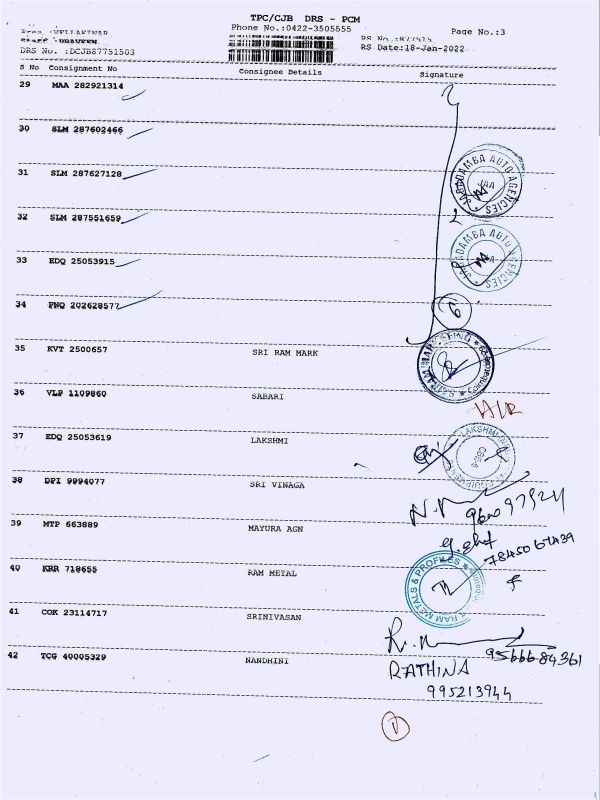 TPC/CJB DRS - PCM
Phone No.:0422-3505555
Page No.:3
Area :VELLAKINAR
Staff :PRAVEEN
RS No.
DRS No. :DCJB87751503
RS Date:18-Jan-2022
S No Consignment No Consignee Details Signature
29 MAA 282921314
30 SLM 287602466
31 SLM 287627128
JAGADAMBA AUTO AGENCIES
JAA
32 SLM 287551659
JAGADAMBA AUTO AGENCIES
33 EDQ 25053915
34 PNQ 202628577
6
35 KVT 2500657 SRI RAM MARK
36 VLP 1109860 SABARI
37 EDQ 25053619 LAKSHMI
38 DPI 9994077 SRI VINAGA
39 MTP 663889 MAYURA AGN
7845067439
40 KRR 718655 RAM METAL
RAM METALS & PROFILES
41 COK 23114717 SRINIVASAN
9566684361
42 TCG 40005329 NANDHINI
RATHINA
995213944